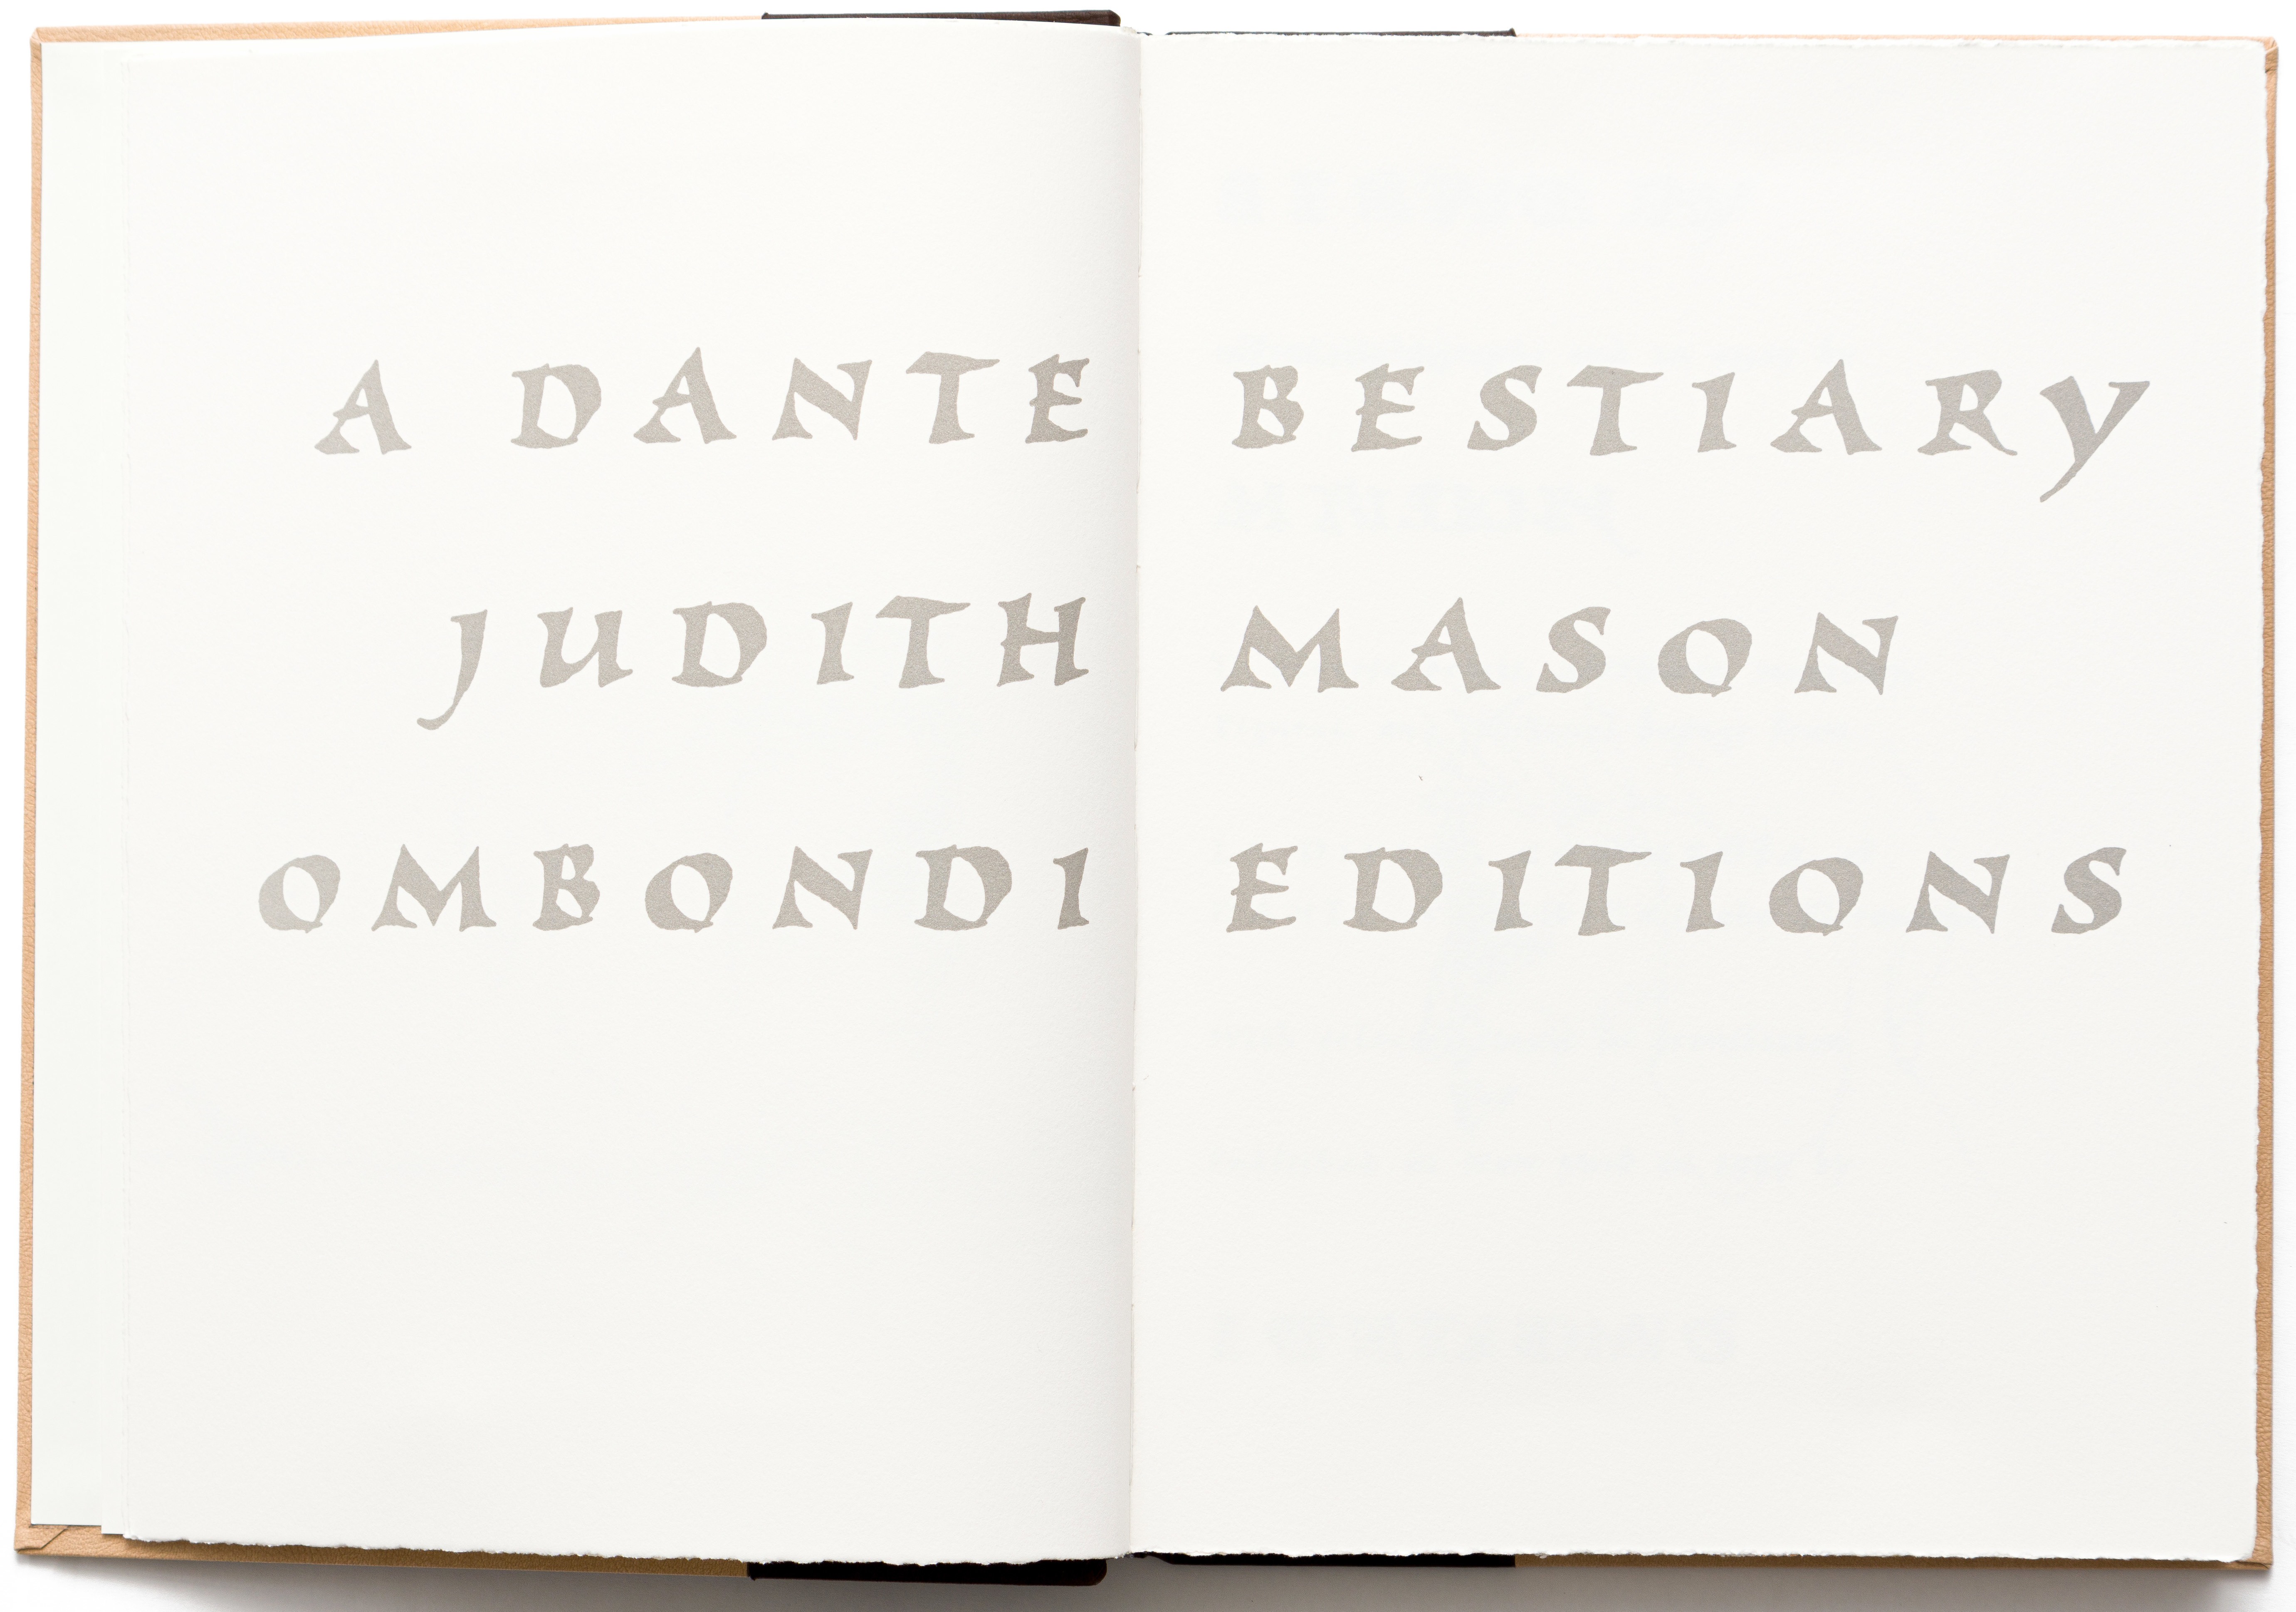 A DANTE BESTIARY
JUDITH MASON
OMBONDI EDITIONS